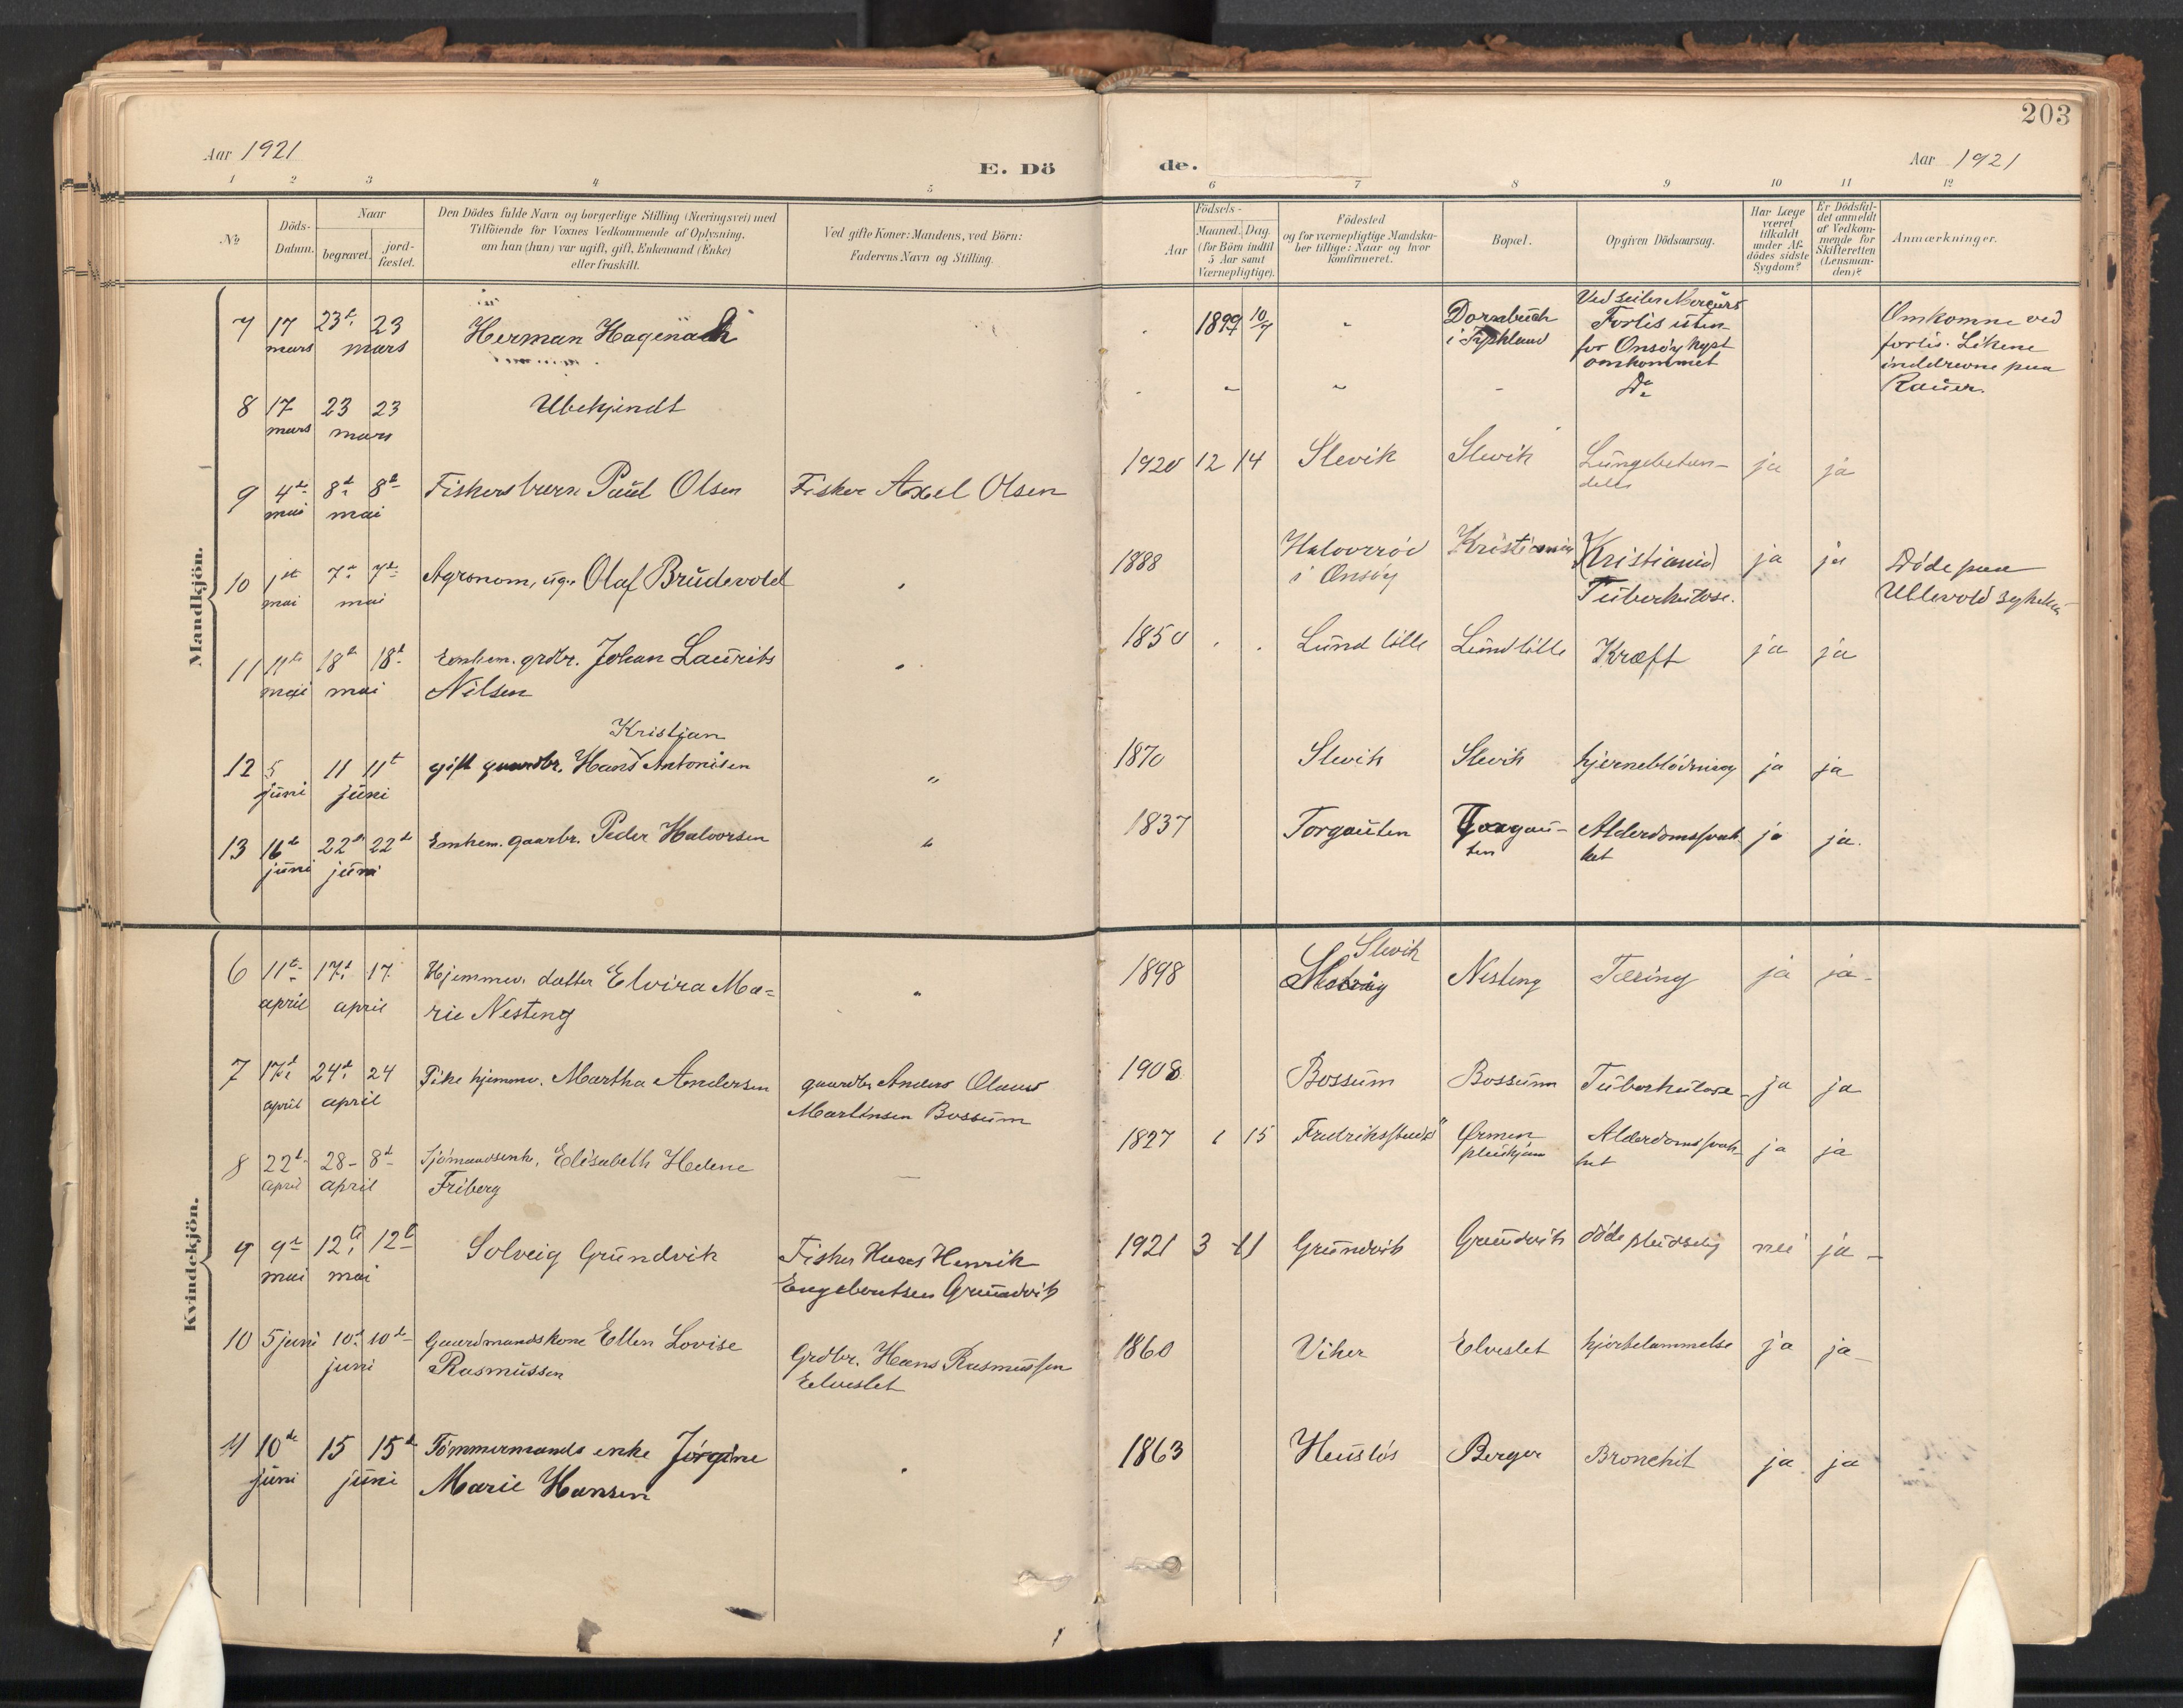 203
Aar 1921
E. Dö
de.
Aar 1921
1 2 3 4 5 6 7 8 9 10 11 12
No
Döds-
Datum.
Naar
begravet.
jord-
fæstet.
Den Dödes fulde Navn og borgerlige Stilling (Næringsvei) med
Tilföiende for Voxnes Vedkommende af Oplysning,
om han (hun) var ugift, gift, Enkemand (Enke)
eller fraskilt.
Ved gifte Koner: Mandens, ved Börn:
Faderens Navn og Stilling.
Födsels-
Aar
Maaned. Dag.
(for Börn indtil
5 Aar samt
Værnepligtige).
Födested
og for værnepligtige Mandska-
ber tillige: Naar og hvor
konfirmeret.
Bopæl.
Opgiven Dödsaarsag.
Har Læge
været
tilkaldt
under Af-
dödes sidste
Sygdom?
Er Dödsfal-
det anmeldt
af Vedkom-
mende for
Skifteretten
(Lensman-
den)?
Anmærkninger.
Mandkjön.
7 17 mars 23d 23 mars
Herman Hagenach
1899 10/7
Dornbuch
i Tyskland
Ved seiler Mercurs
Forlis uten-
for Onsöy kyst
omkommet
Omkomne ved
forlis. Likene
inddrevne paa
Rauer.
8 17 mars 23 23 mars
Ubekjendt
Do
9 4de mai 8d 8d mai
Fiskersbarn Paul Olsen
Fisker Axel Olsen
1920 12 14 Slevik Slevik
Lungebeten-
delse
ja ja
10 1st mai 7d 7d mai
Agronom, ug. Olaf Brudevold
1888
Halvorröd
i Onsöy
Kristiania
(Kristiania)
Tuberkulose.
ja ja
Döde paa
Ullevold sykehus
11 11te mai 18d 18d mai
Enkem. grdbr. Johan Laurits
Nilsen
1850 Lund lille Lund lille Kræft ja ja
12 5 juni 11 11t juni
Kristjan
gift gaardbr. Hans Antonisen
1870 Slevik Slevik hjerneblödning ja ja
13 16de juni 22d 22de juni
Enkem. gaarbr. Peder Halvorsen
1837 Torgauten
Torgau-
ten
Alderdomssvak-
het
ja ja.
Kvindekjön.
6 11te april 17d 17 april
Hjemmev. datter Elvira Ma=
rie Nesteng
1898
Slevik
Nesteng Tæring ja ja
7 17d april 24d 24 april
Pike hjemmv. Martha Andersen
gaardbr Anders Olaus
Martinsen Bossum
1908 Bossum Bossum Tuberkulose ja ja
8 22d april 28 8d april
Sjömandsenke, Elisabeth Helene
Friberg
1827 1 15 Fredriksstad
Ørmen
pleiehjem
Alderdomssvak-
het
ja ja
9 9d mai 12te 12te mai
Solveig Grundvik
Fisker Hans Henrik
Engebretsen Grundvik
1921 3 11 Grundvik Grundvik döde pludselig nei ja
10 5 juni 10d 10de juni
Gaardmandskone Ellen Lovise
Rasmussen
Grdbr. Hans Rasmussen
Elveslet
1860 Viker Elveslet hjertelammelse ja ja
11 10de juni 15 15d juni
Tömmermands enke Jörgine
Marie Hansen
1863 Huslös Berger Bronchit ja ja